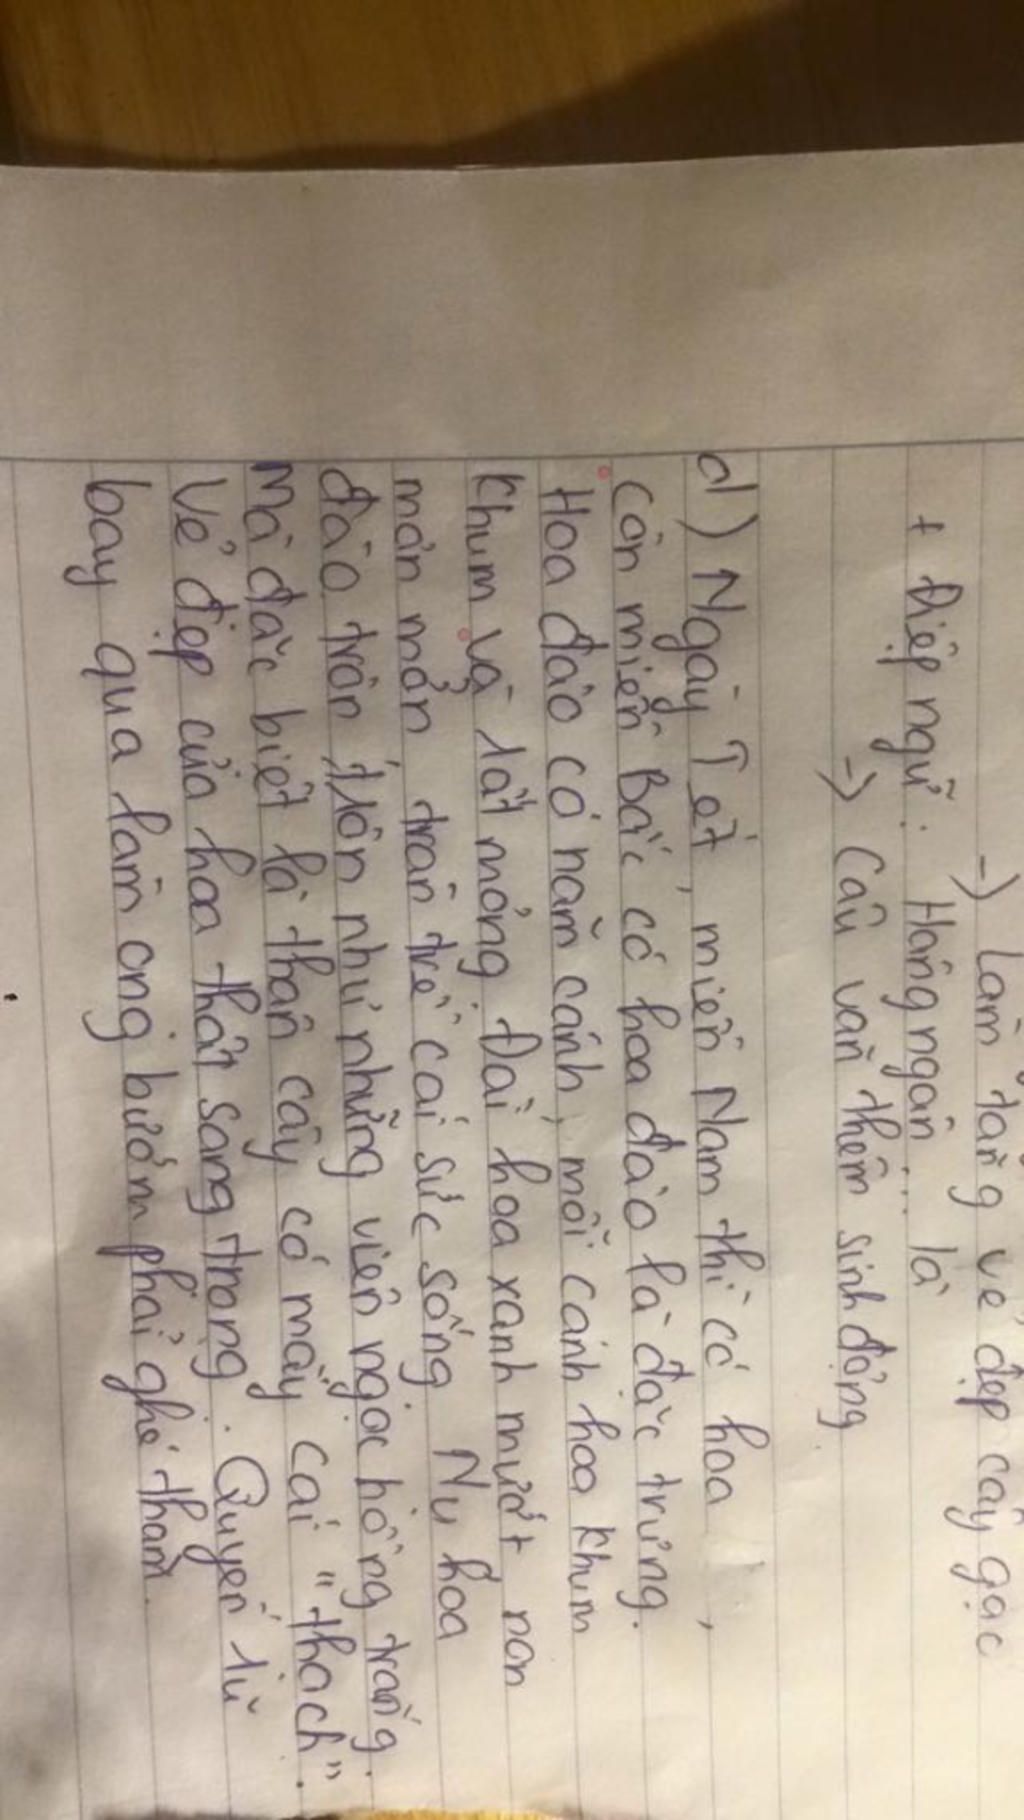 -> Làm tăng vẻ đẹp cây gạo
+ Điệp ngữ: Hàng ngàn ... là
-> Câu văn thêm sinh động.
d) Ngày Tết, miền Nam thì có hoa ,
còn miền Bắc có hoa đào là đặc trưng.
Hoa đào có năm cánh, mỗi cánh hoa khum
khum và rất mỏng. Đài hoa xanh mướt non
mơn mởn tràn trề cái sức sống. Nụ hoa
đào tròn trròn như những viên ngọc hồng trắng.
Mà đặc biệt là thân cây có mấy cái "thạch".
Vẻ đẹp của hoa thật sang trọng. Quyến rũ
bay qua làm ong bướm phải ghé thăm.